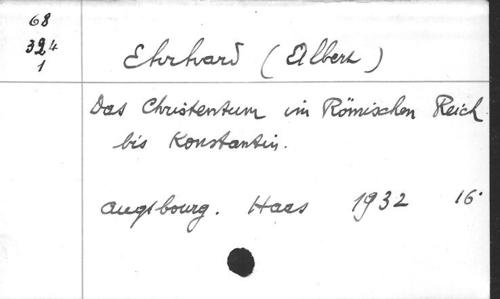 68
324
1
Ehrhard (Albert)
Das Christentum im Römischen Reich
bis Konstantin.
Augsbourg. Haas 1932 16°